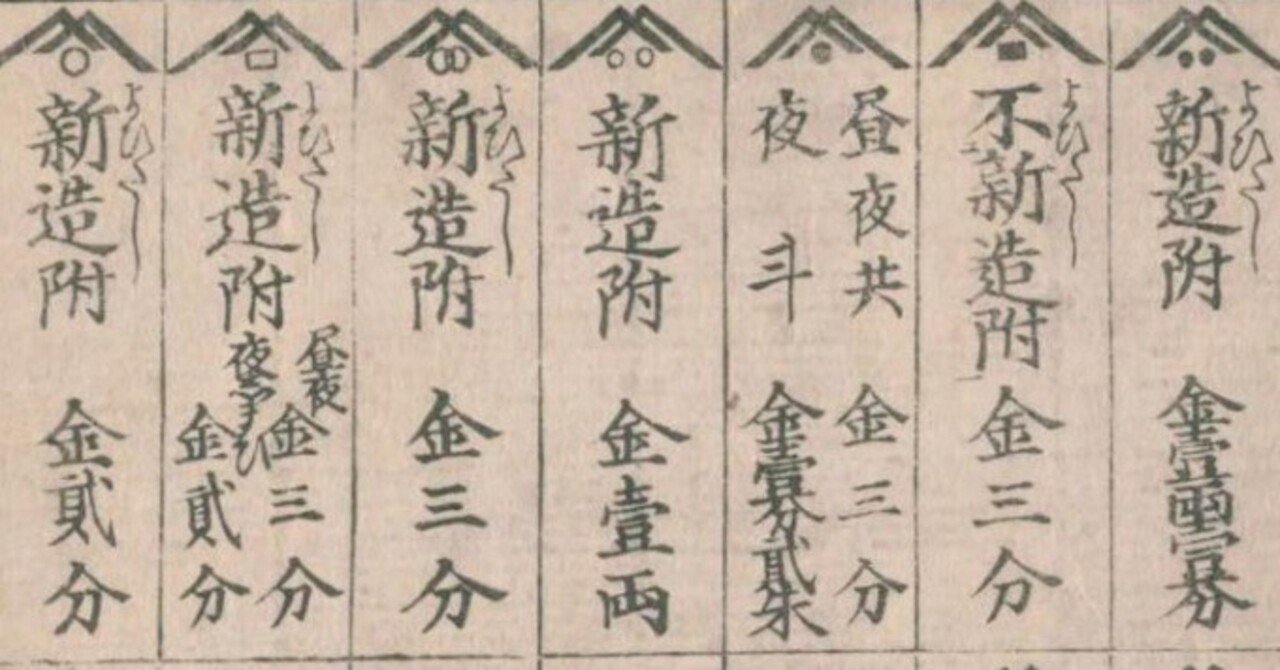 新造附 金壹両壹分
よびだし
不新造附 金三分
よびだし
昼夜共 金三分
夜斗 金壹分貳朱
新造附 金壹両
新造附 金三分
よびだし
新造附
よびだし
昼夜 金三分
夜 金貳分
新造附 金貳分
よびだし